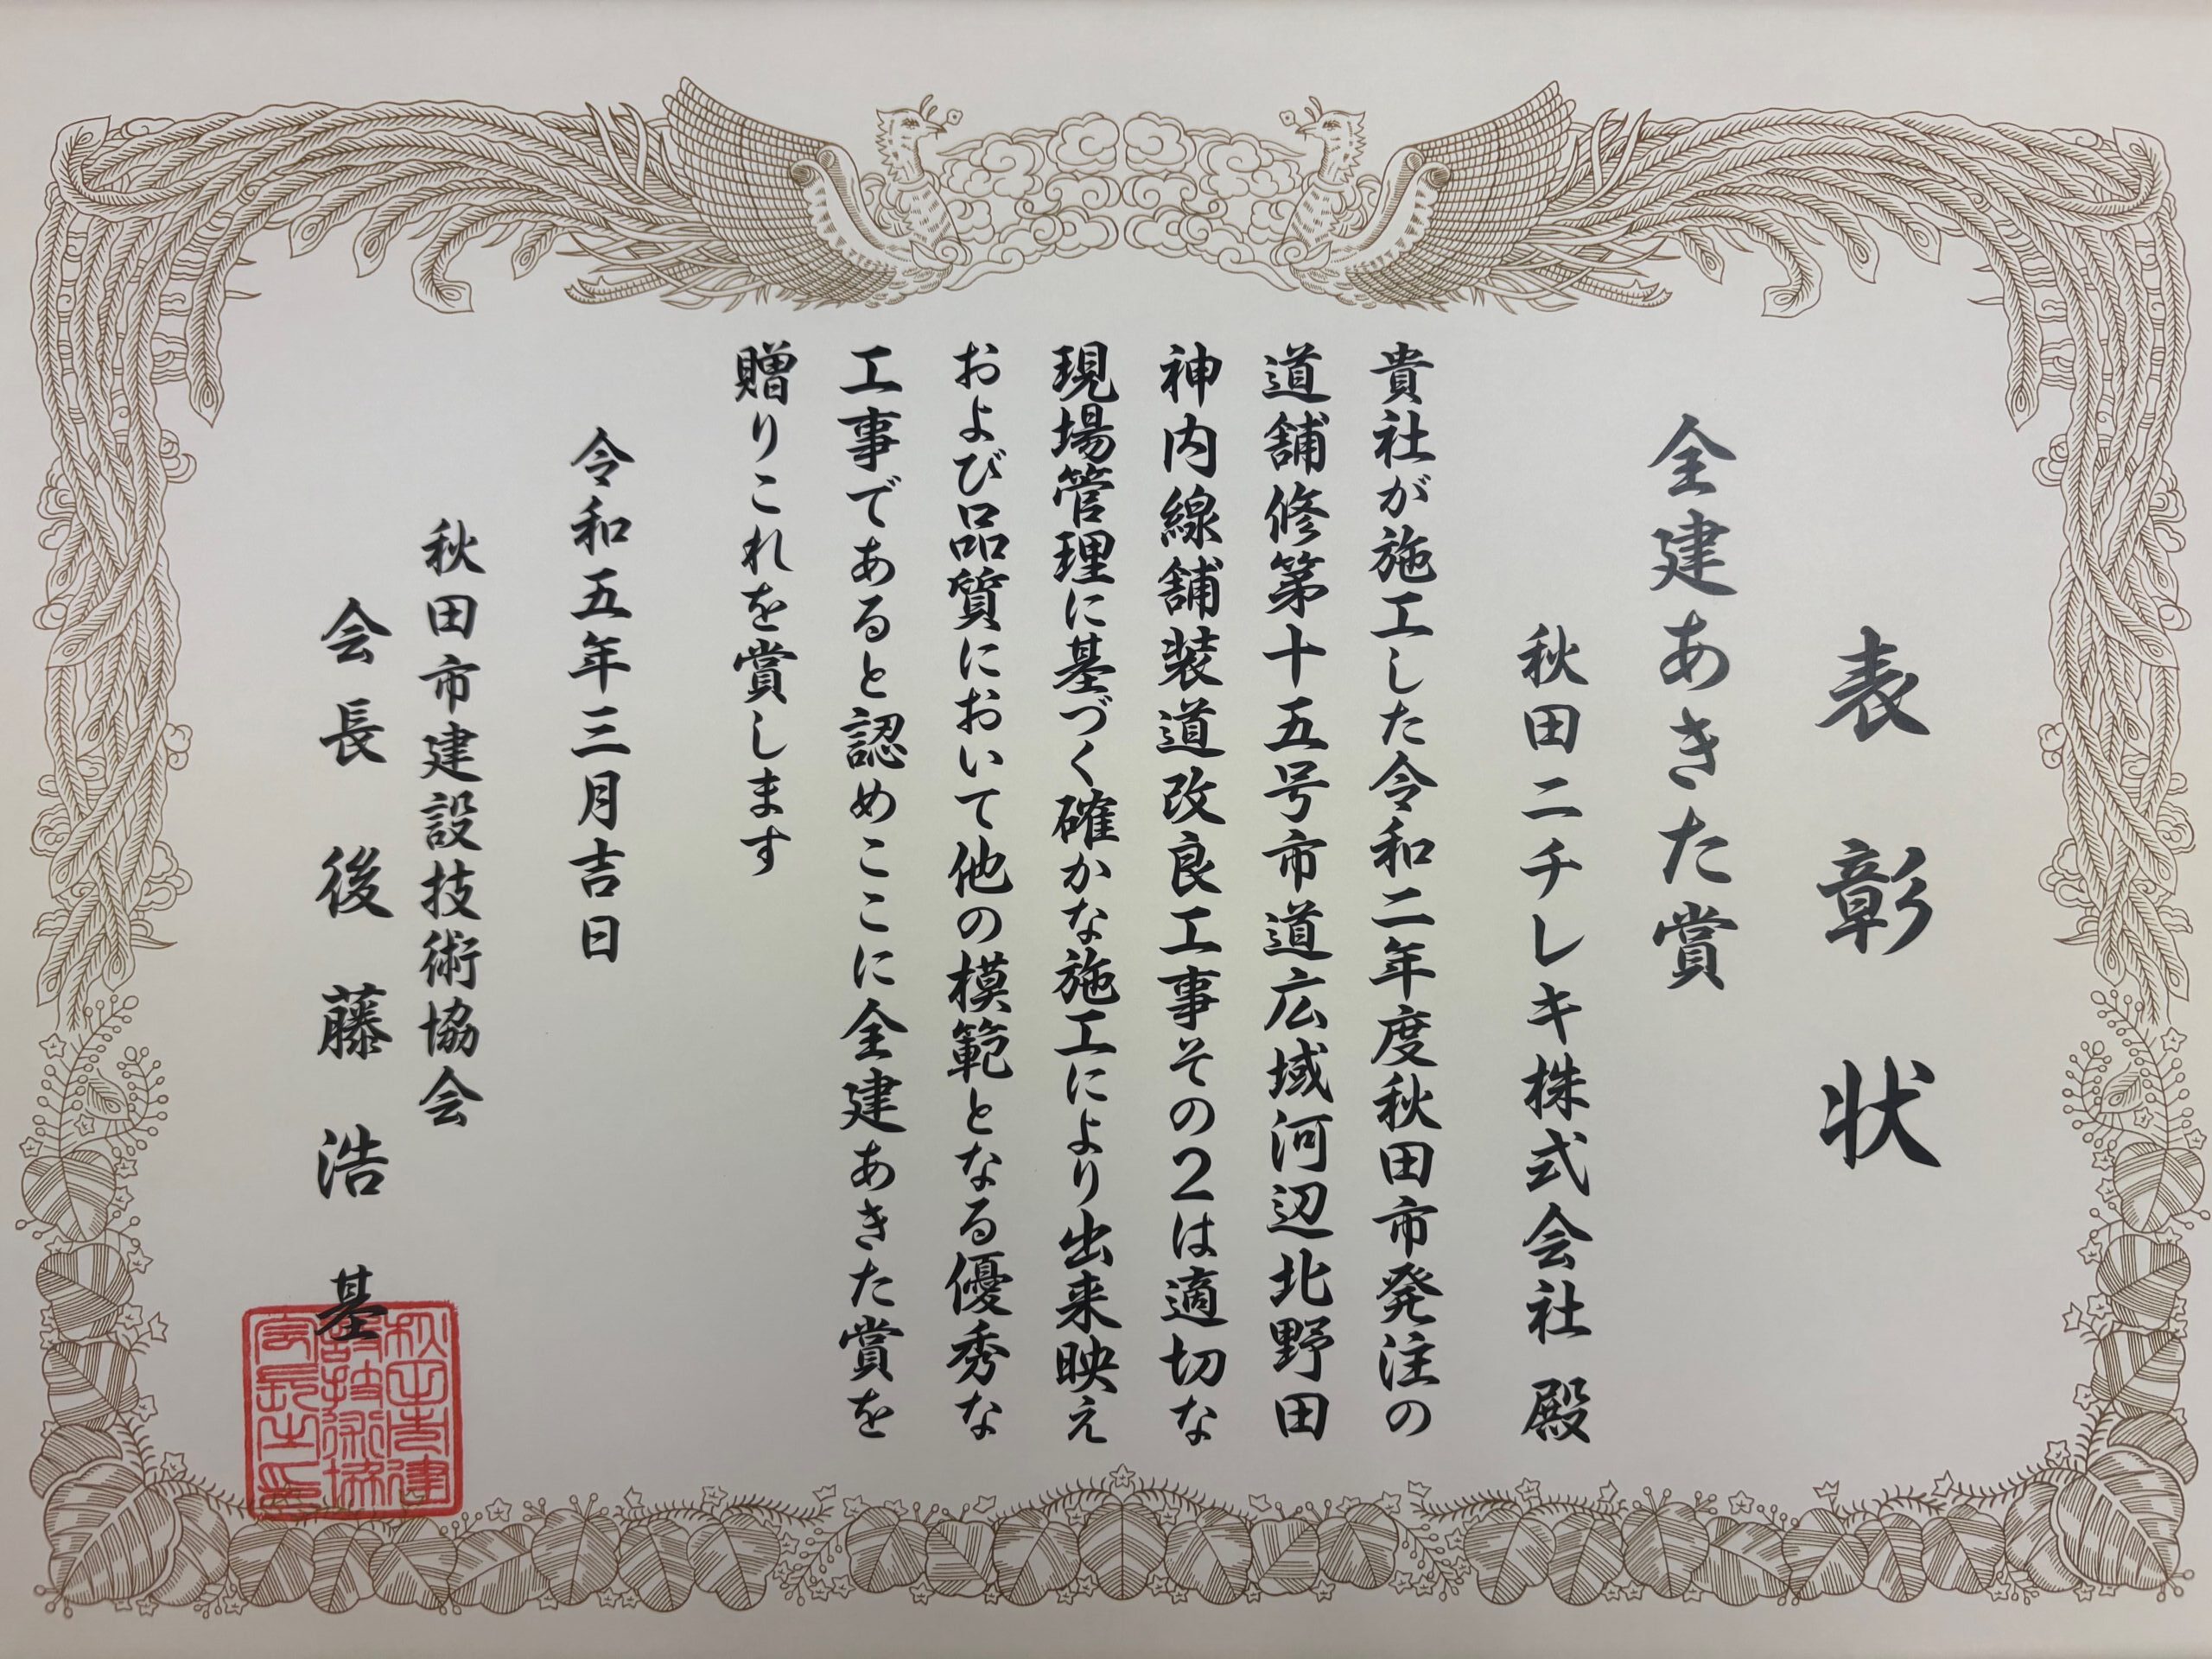 表彰状
全建あきた賞
秋田ニチレキ株式会社 殿
貴社が施工した令和二年度秋田市発注の
道舗修第十五号市道広域河辺北野田
神内線舗装道改良工事その2は適切な
現場管理に基づく確かな施工により出来映え
および品質において他の模範となる優秀な
工事であると認めここに全建あきた賞を
贈りこれを賞します
令和五年三月吉日
秋田市建設技術協会
会長 後藤浩基
秋田市建
設技術協
会長之印